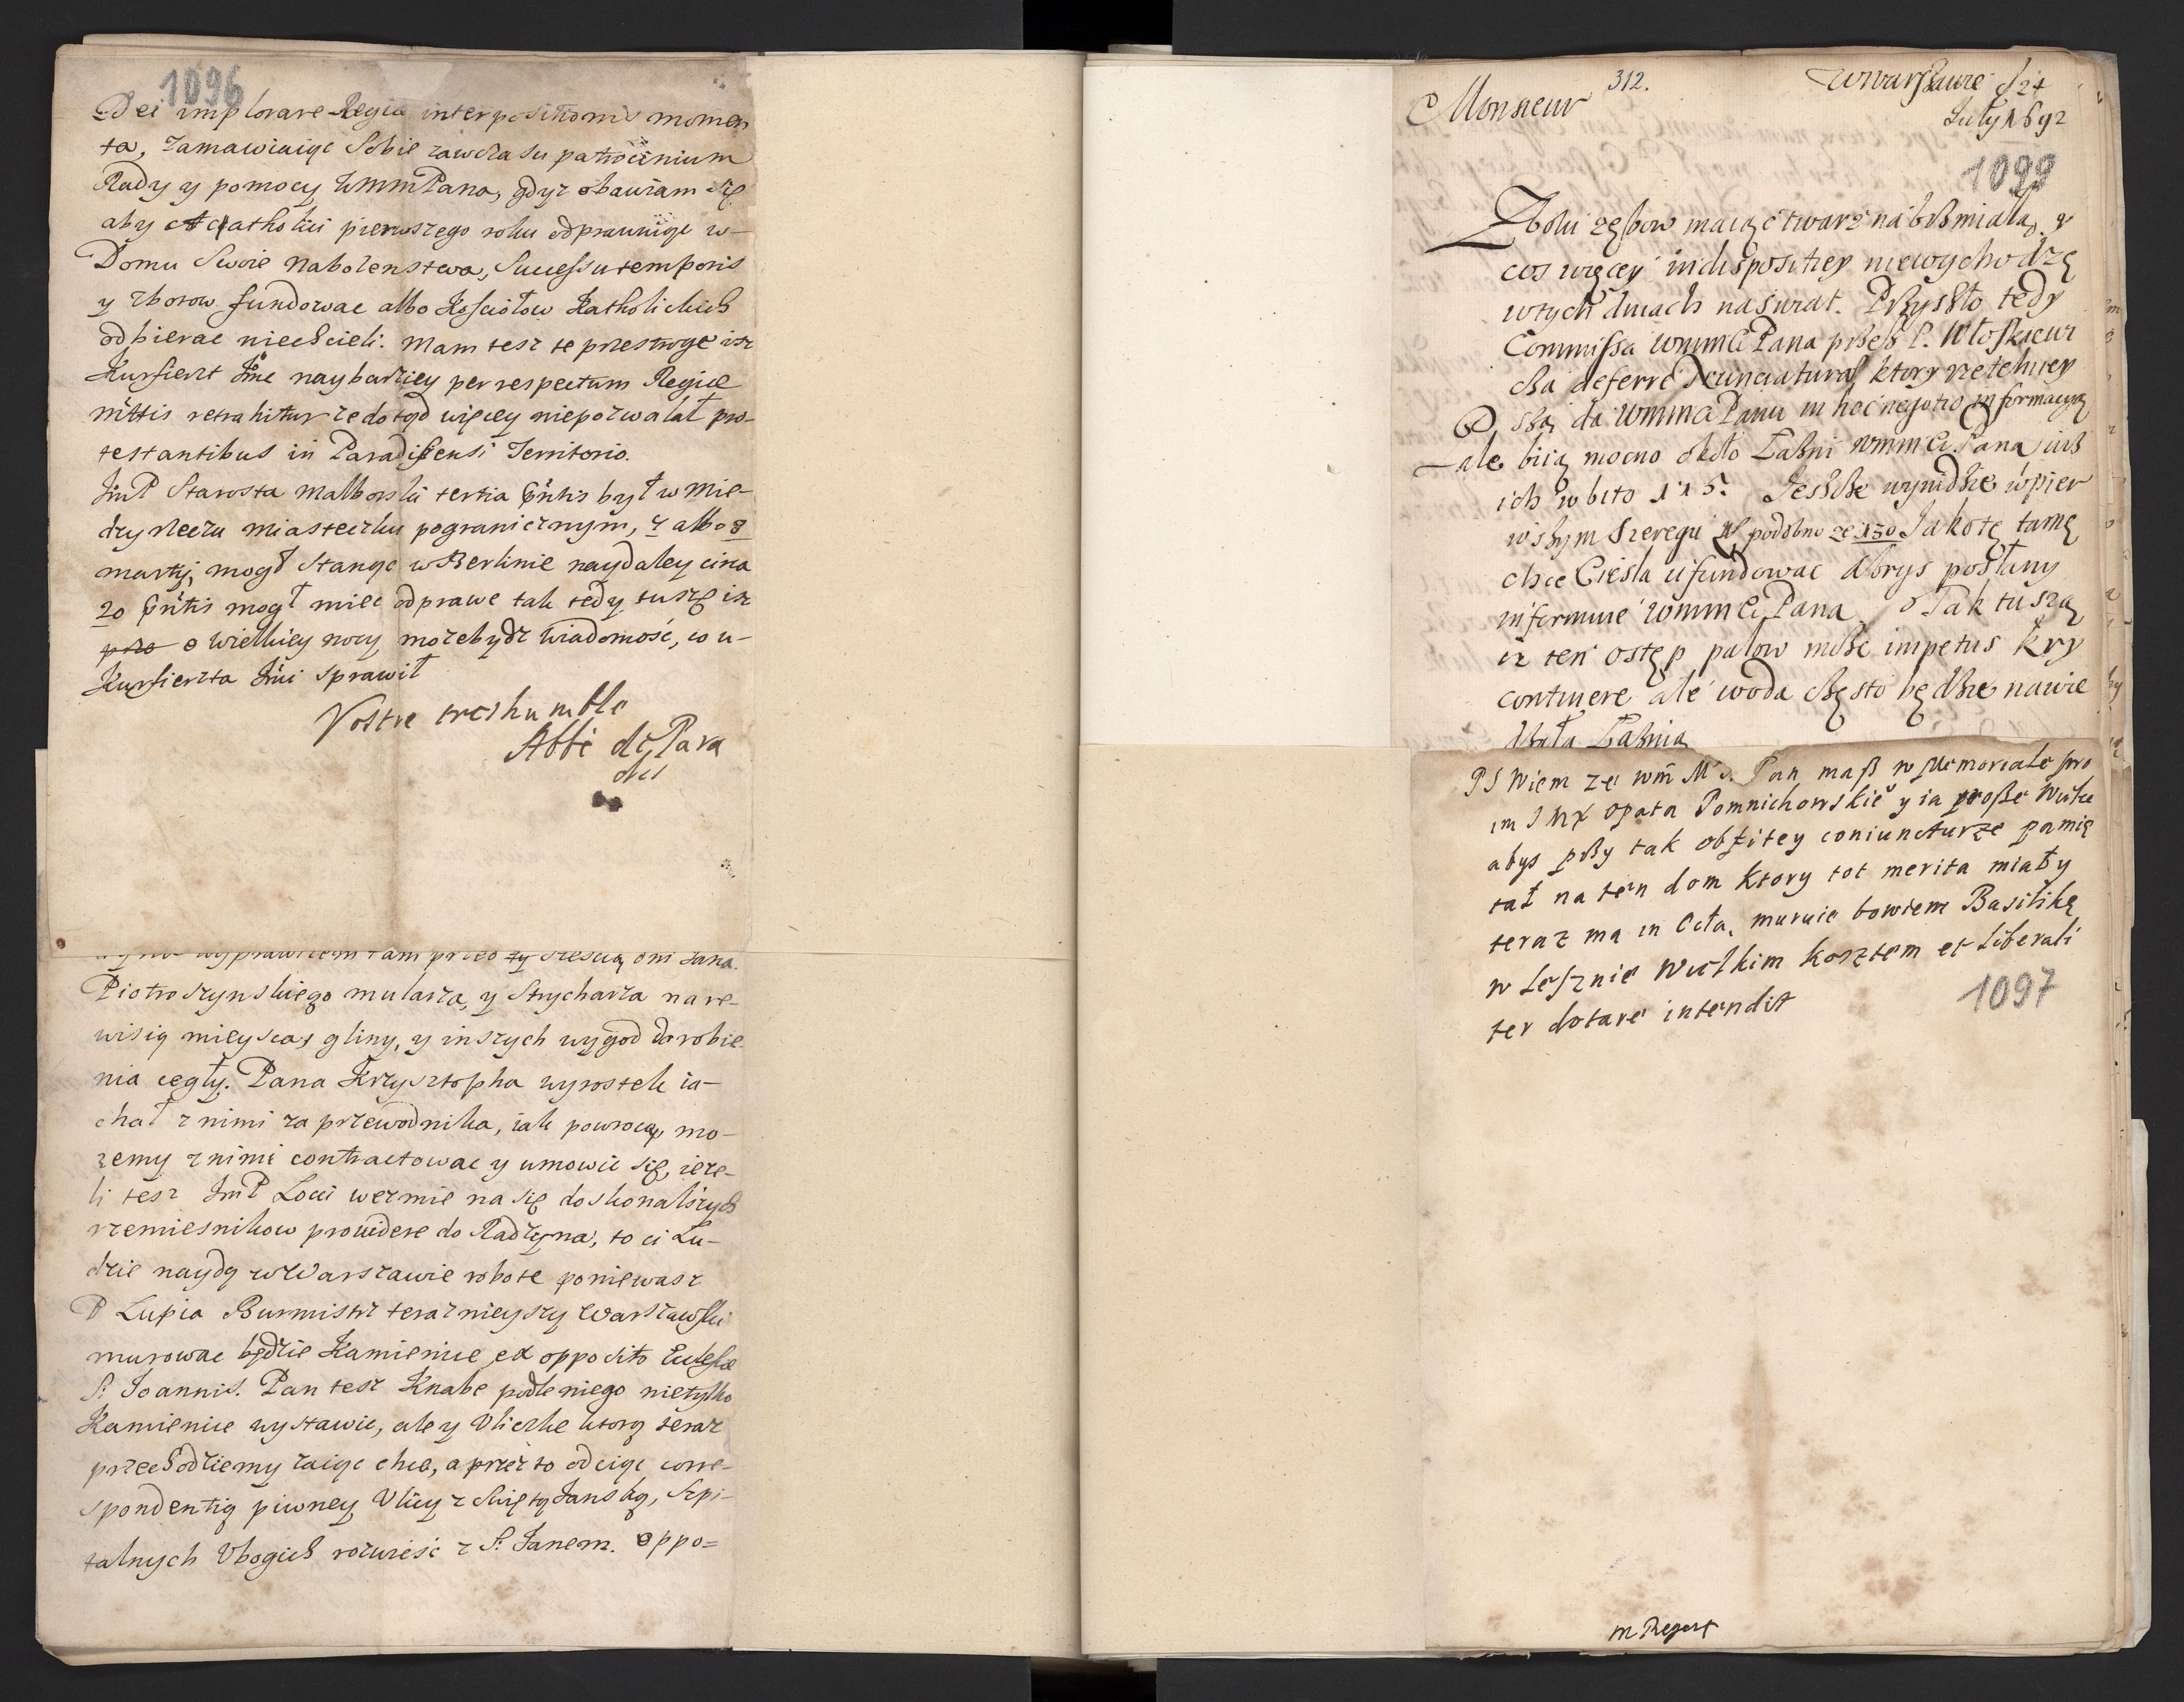 1096
Dei implorare Regia interpositionis momen
ta, zamawiaiąc Sobie zawczasu patrocinium
Rady y pomocy WMMPana, gdyz obawiam się
aby Acatholici pierwszego roku odprawuiąc w-
Domu Swoie Nabozenstwa, Successu temporis
y zborow fundowac albo Kosciołow Katholickich
odbierac niechcieli. Mam tesz te przestroge isz
Kurfierszt Jmc naybarziey per respectum Regiae
Mttis retrahitur ze dotąd więcey niepozwalał pro-
testantibus in Paradisensi Territorio.
JmP Starosta Malborski tertia pntis był w Mie-
dzyrzeczu miasteczku pogranicznym, 7 albo 8
martij, mogł stanąc w Berlinie naydaley cira
20 pntis mogł miec odprawe tak tedy tuszę isz
pzo o wielkiey nocy, mozebydz wiadomość, co u-
Kurfierszta Jmci sprawił
Vostre treshumble
Abbé de Para
dis
wyprawiłem tam przed tą sześcią oni Jana
Piotroszynskiego mularza, y Strycharza na re-
wisią mieysca, gliny, y inszych wygod do robie-
nia cegły. Pana Krzysztopha wyrostek ia-
chał z nimi za przewodnika, iak powrocą, mo-
zemy z nimi contractowac y umowic się, ieze-
li tesz JmP Locci wezmie na się doskonalszych
rzemiesnikow providere do Radzyna, to ci Lu-
dzie naydą w Warszawie robote poniewasz
P Lupia Burmistrz teraznieyszy Warszawski
murowac będzie Kamienice ex opposito Ecclesiae
S: Joannis. Pan tesz Knabe podle niego nietylko
Kamienice wystawic, ale y Uliczke ktorą teraz
przechodziemy zaiąc chce, a przez to odciąc corre-
spondentią piwney Ulicy z Swiętojanską, Szpi-
talnych Ubogich rozwiesc z S: Janem. Oppo=
312.
Monsieur
w Warszawie d 24
July 1692
1099
Z bolu zębow maiąc twarz nabrzmiałą, y
cos więcey indispositiey niewychodzę
w tych dniach na swiat. Przyszło tedy
Commissa WMMCi Pana przesz P. Włoskiewi
cza deferre Nunciaturae, ktory rzetelniey
P. sza, da WMMCi Panu in hoc negotio informacyą
ale biią mocno około Łazni WMMCi Pana iusz
ich wbito 115. Jeszcze wynidzie w pier
wszym szeregu podobno ze 130 Jakotę tamę
chce Ciesla ufundowac Abrys posłany
informuie WMMCi Pana. Tak tuszą
iz ten ostęp palow może impetus kry
continere ale woda często będzie nawie
dzała Łaznią
PS Wiem ze Wm M: Pan masz w Memoriale pro
im JMX Opata Pomnichowskie° y ia prosze Wielce
abys przy tak obfitey coniuncturze pamię
tał na ten dom ktory tot merita miał y
teraz ma in Octa, muruie bowiem Basilikę
w Lesznie Wielkim kosztem et liberali
ter dotare intendit
1097
m Regest